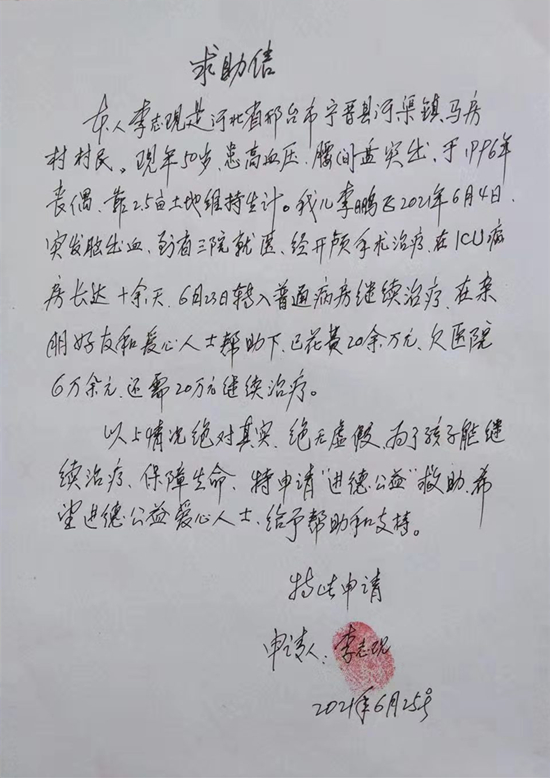 求助信
本人李志现是河北省邢台市宁晋县河渠镇马房
村村民。现年50岁,患高血压,腰间盘突出,于1996年
丧偶,靠2.5亩土地维持生计。我儿李鹏飞2021年6月4日,
突发脑出血,到省三院就医,经开颅手术治疗,在ICU病
房长达十余天,6月23日转入普通病房继续治疗,在亲
朋好友和爱心人士帮助下,已花费20余万元,欠医院
6万余元,还需20万元继续治疗。
以上情况绝对真实,绝无虚假,为了孩子能继
续治疗、保障生命,特申请“进德公益”救助,希
望进德公益爱心人士,给予帮助和支持。
特此申请
申请人:李志现
2021年6月25号